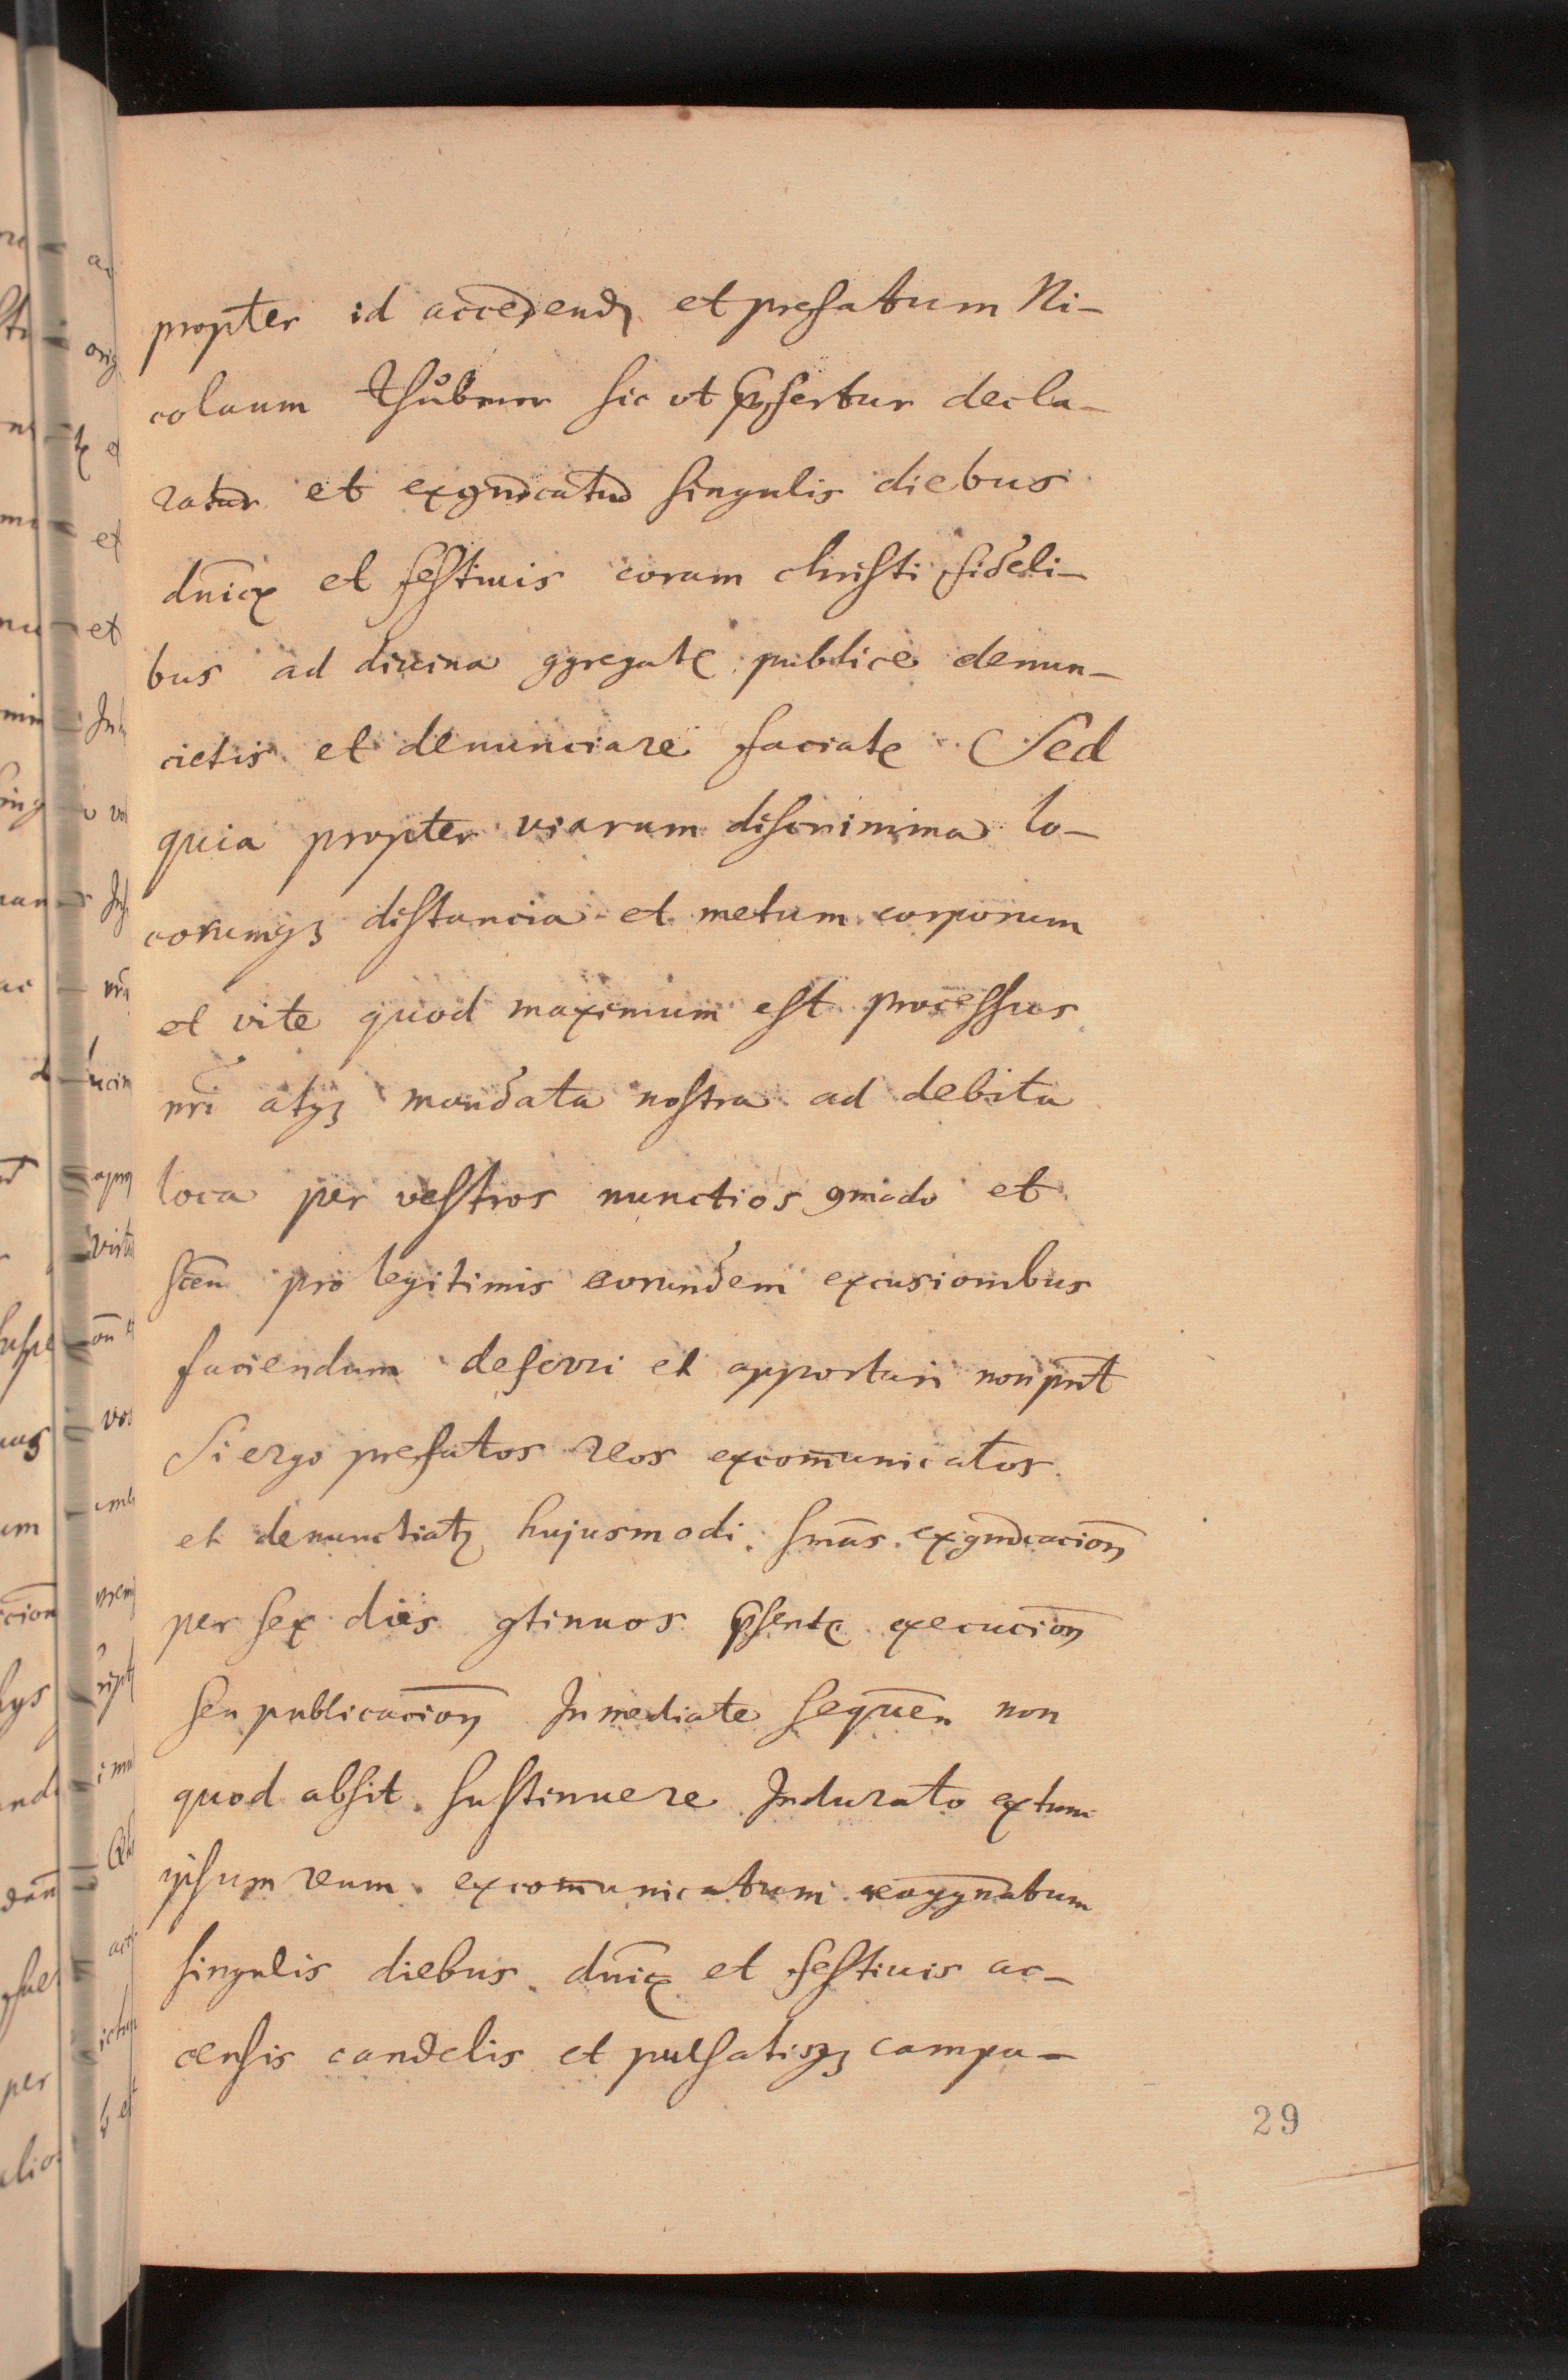 propter id accedendꝫ et prefatum Ni-
colaum Thůbrer sic ut p̄fertur decla-
ratur et exꝯm̄icatuꝫ singulis diebus
dn̄icꝭ et festiuis coram christi fideli-
bus ad diuina ꝯgregatꝭ publice denun-
cietis et denunciare faciatꝭ Sed
quia propter viarum discrimina lo-
corumqꝫ distancia et metum corporum
et vite quod maximum est processus
nr̄i atqꝫ mandata nostra ad debita
loca per vestros nunctios ꝯmodo et
secū pro legitimis eorundem excusionibus
faciendum deferri et apportari non pn̄t
Si ergo prefatos reos excom̄unicatos
et denunctiatꝫ hujusmodi sm̄as exꝯm̄icacioñ
per sex dies ꝯtinuos p̄sentꝭ execucioñ
seu publicacioñ Inmediate sequeñ non
quod absit sustinuere Indurato extunc
ipsum reum excom̄unicatum reaggrauatum
singulis diebus dn̄icꝭ et festiuis ac-
censis candelis et pulsatisqꝫ campa-
29